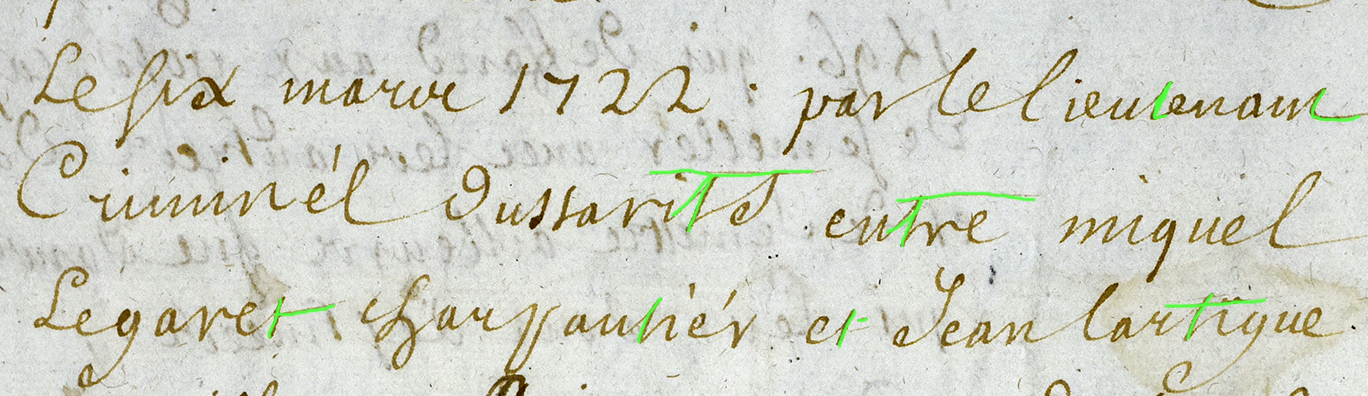 Le six marce 1722 . par le lieutenant
Criminél Dussarité entre miquel
Legaret charpantiér et Jean lartigue